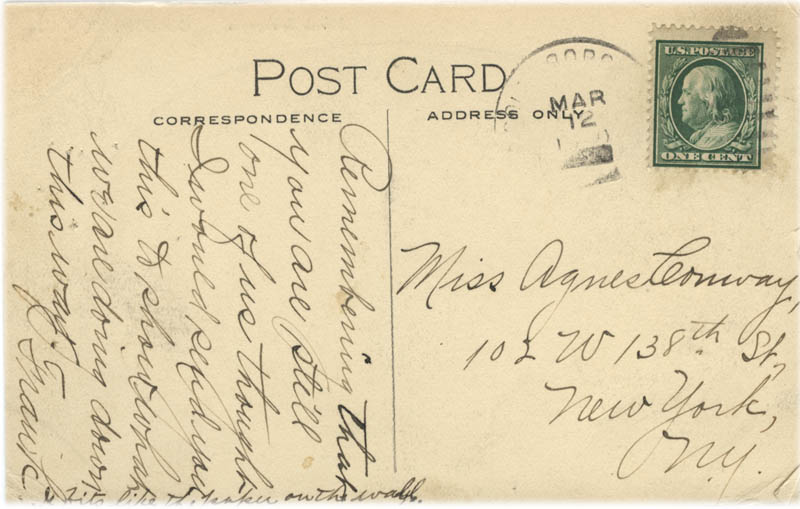 POST CARD
CORRESPONDENCE
ADDRESS ONLY
MAR
12
U.S. POSTAGE
ONE CENT
Remembering that
you are still
one of us thought
I would send you
this to show what
we are doing down
this way.
Frank
like the paper on the wall.
Miss Agnes Conway,
102 W 138th St,
New York,
N.Y.